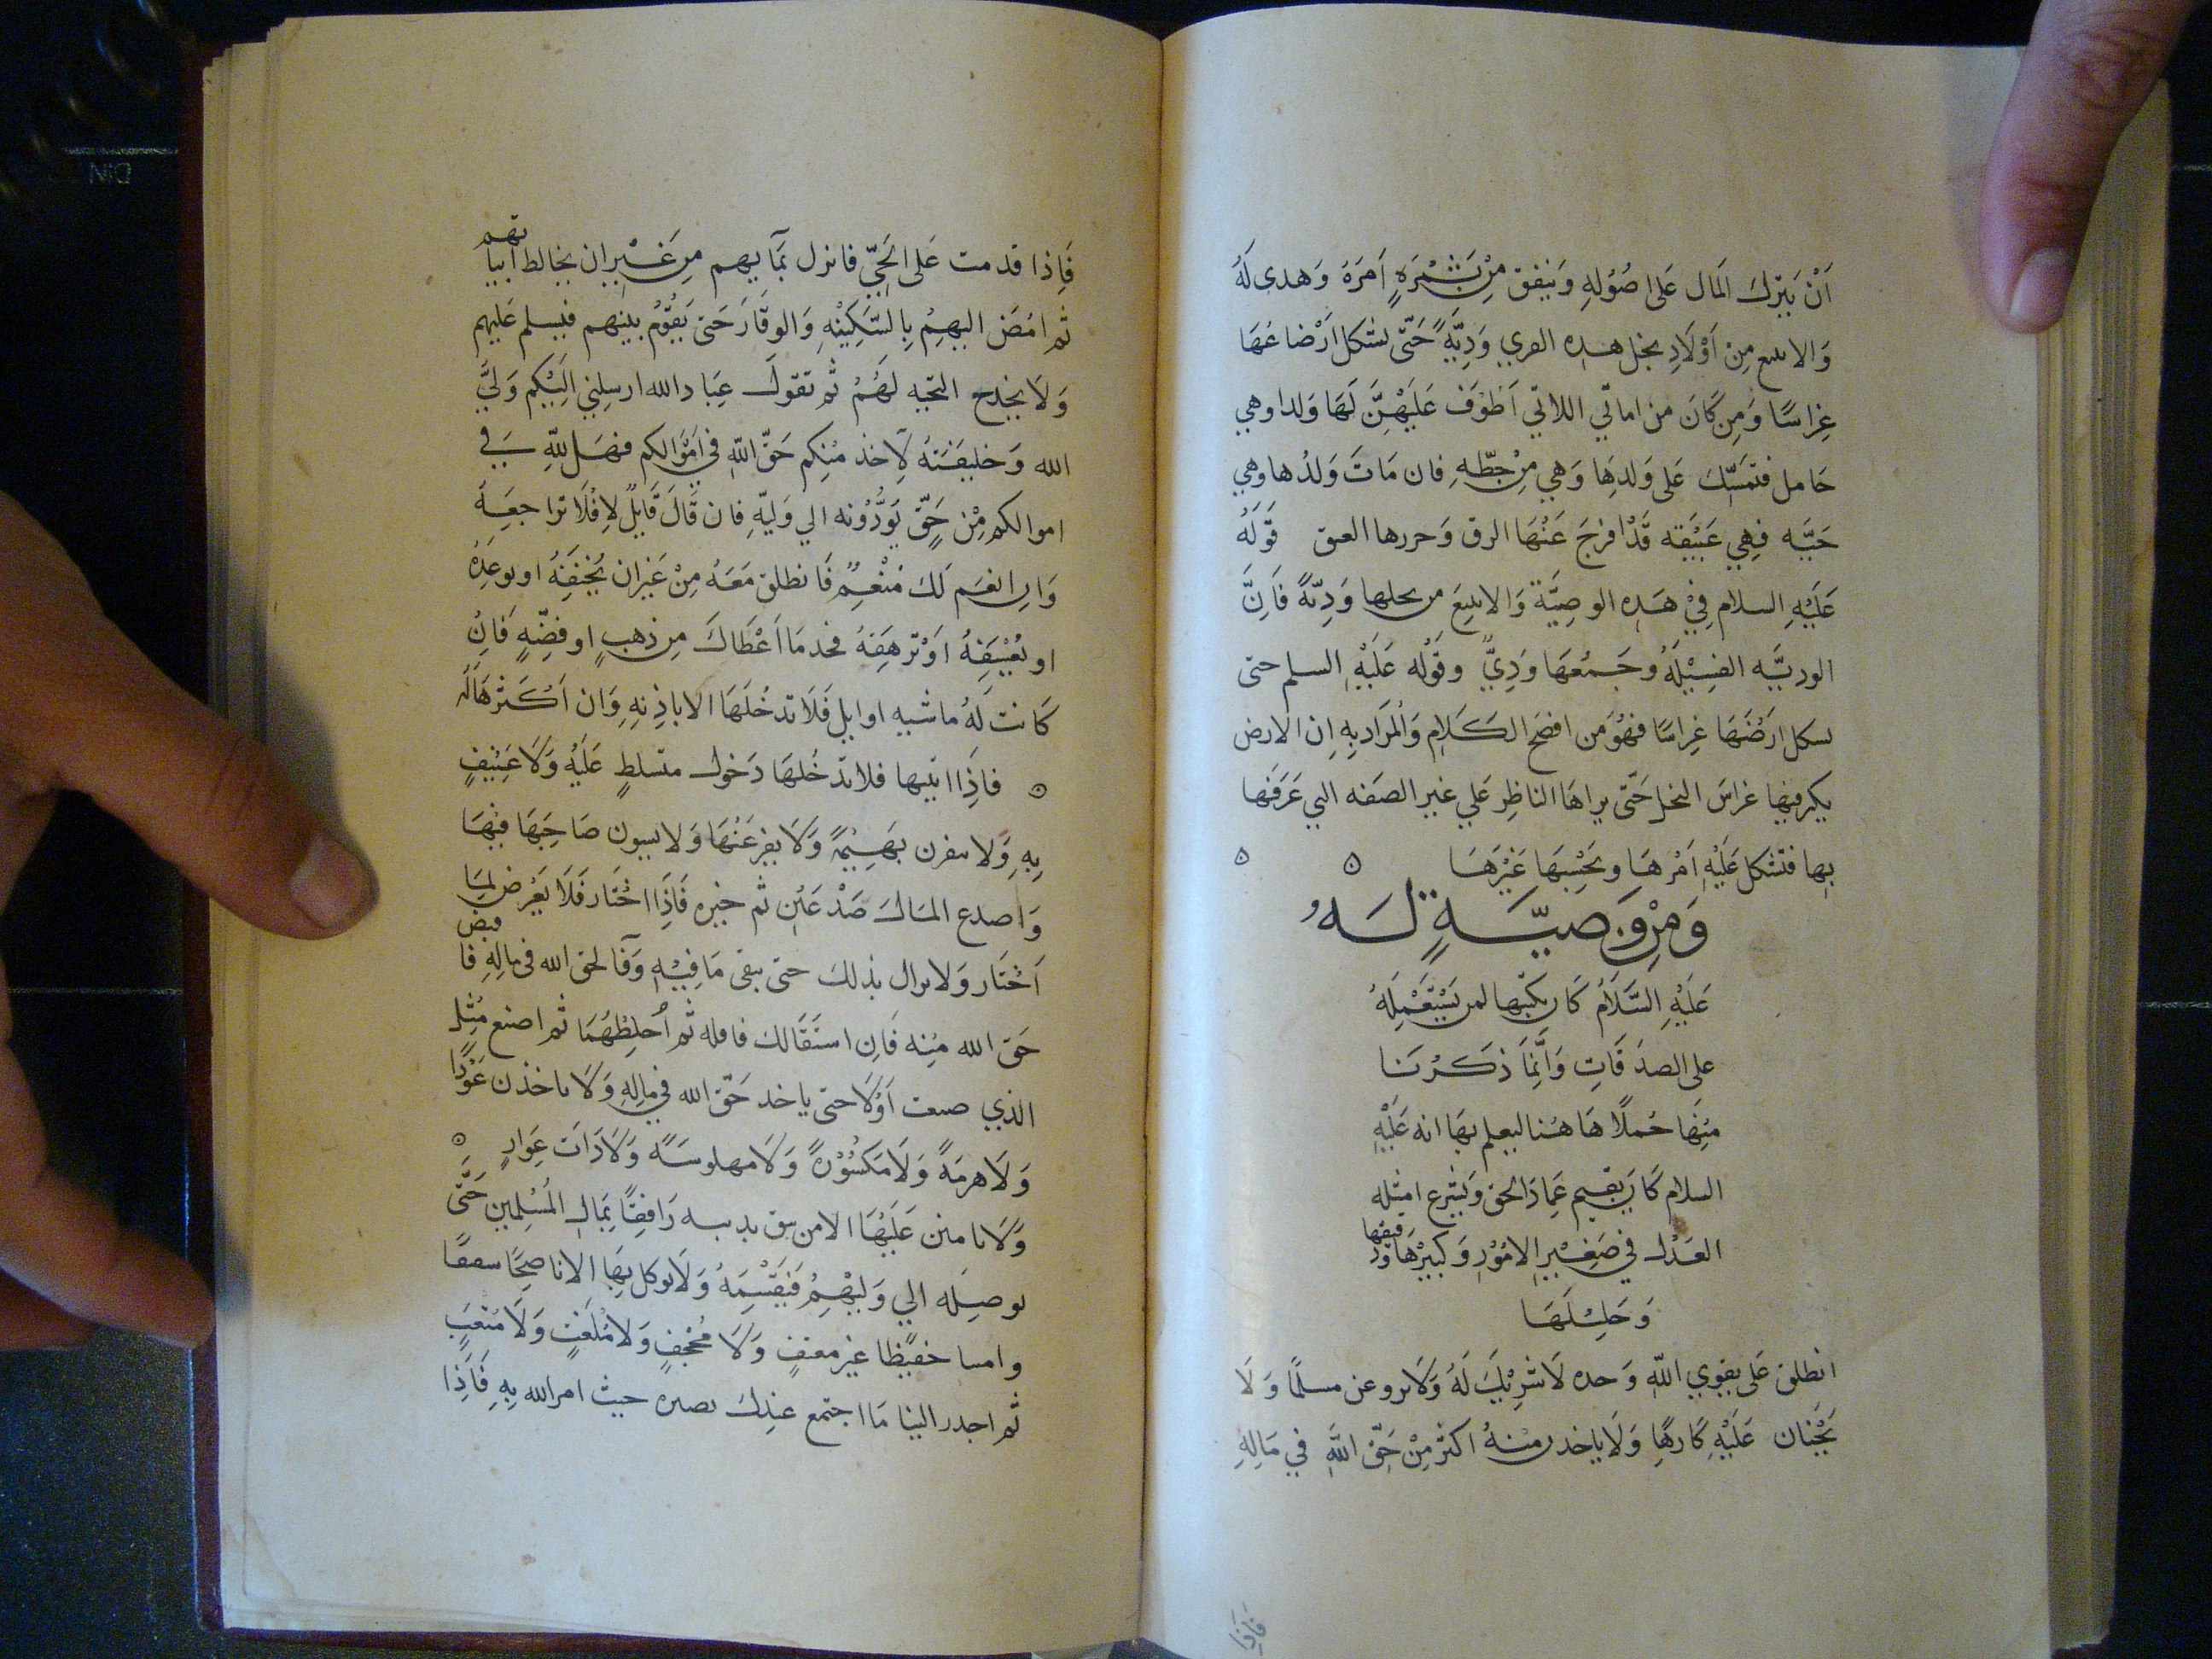 اَنْ يَترك اَلمال عَلى اصُوْلهِ وَينفق مِنْ ثَمْرَهِ اَمَرَهُ وَهدى لَهُ
وَالا ىىىع مِن اَوْلَادِ نخل هده القري وَدِيَّهً حَتّى تشكل اَرْضا عُهَا
غِراسًا وَمِن كَانَ من اماتي اللاتي اَطوَف عَليْهنَّ لَهَا وَلدا وهي
حَامل فتمَسّك عَلى وَلدِهَا وَهي مِنْ حظّهِ فان مَاتَ وَلدُها وهي
حَيَّه فهِي عَتيْقه قَدْ افرجَ عَنْهَا الرق وَحررها العىق قَوْلَهُ
عَليْهِ السلام فِيْ هَذه الوصِيَّة وَالا ىبيعَ من ىحلها وَدِيّهً فَاِنَّ
الوديَّه الفسِيْلَهُ وجَمْعُهَا وَدِيٌّ وقوْله عَليْهِ السلم حتى
ىسكل ارَضْهَا غِراسًا فهُوَ من افصَح الكَلام وَالمرَاد بهِ اِن الارض
يكىر فيها غراسَ النخل حَتّى يراهَا الناظِر عَلي غير الصفه التي عَرَفهَا
بها فتشكل عَليْهِ اَمْرهَا وَيَحْسِبهَا غيْرهَا
وَمِنْ وَصيّةٍ لَهُ
عَليْهِ السَّلَامُ كَان يكتبها لمن يَسْتَعْمِلهُ
على الصدَقاتِ وَاِنَّمَا ذكَرْنَا
مِنْهَا جُملًا هَاهُنا ليعلم بهَا انه عَليْهِ
السلام كَانَ يقيم عِمادَ الحق وَيشرع امثله
العَدْل في صَغيْرِ الامُوْر وَكبيْرهَا وَدقيقها
وَجَلِيْلهَا
انطلق عَلى تقوي اللهِ وَحده لَا شَرِيْكَ لَهُ وَلَا ىروعن مسلمًا وَلَا
تَجْتَان عَليْهِ كَارِهًا وَلَا ياخدن مِنهُ اكثر مِنْ حَقّ اللهِ في مَالِهِ
فَاذا
فَاِذا قدمت عَلى الحَيِّ فانزل بمَآيهم مِن غيْرِ ان يخالط ابياتهم
ثم امْضَ اليهِمْ بِالسَّكِيْنْهِ وَالوقَار حَتى تقُوْمُ بينهم فيسلم عَليهم
وَلَا يخدج التحيه لَهُمْ ثم تقول عِبَاد الله ارسلني اليْكم وَليُّ
الله وَخليفَتهُ لآخذ مِنْكم حَقّ اللهِ في اَموَالكم فهَل للهِ في
اموالكم مِنْ حَقٍّ تؤَدُّوْنه الي وَليّهِ فان قَالَ قَايلٌ لا فلَا تراجعَهُ
وَان انعَم لَك مُنْعِمٌ فَانطلق مَعَهُ مِنْ غيْران تخِيْفهُ او توعِدهُ
او تُعْسفهُ اوْترهَقهُ فخد مَا اَعْطَاكَ مِن ذهبٍ او فضّهٍ فَاِنْ
كَانت لهُ ماشيه او ابل فَلَا تدخُلهَا الا باذِنهِ وَان اَكثرهَا لَه
فاذَا اتيتها فلا تدْخُلهَا دَخول متسلطٍ عَليْهِ وَلَا عَنِيْفٍ
بِهِ وَلا ىىفرن بَهِيْمهً وَلَا يفزعَنْهَا وَلا ىسون صَاحِبَهَا فيهَا
وَاصدع المَال صَدْعَيْن ثم خيره فَاذَا اختَار فَلَا يَعْرض لِمَا
اَخْتَار وَلا ىزال بذلك حتى يبقى مَا فِيْهِ وَفآ لحق الله في مالِهِ فاقبض
حَق الله مِنْه فَان استَقَالك فاقله ثم اُخلِطهُمَا ثم اصنع مُثِل
الذي صىعت اَوَّلَا حتى ياخد حَقّ الله في مالِهِ وَلَا ىاخذن عَوْدًا
وَلَا هرمَهً وَلَا مَكسُوْرَهً وَلَا مهلوسَهً وَلَا ذَات عِوارٍ
وَلَا ىامنن عَليْهَا الا من ىىق بديىه رَافِقًا بمَال المُسْلِمين حَتَّى
ىوصِله الي وَليْهِمْ فيَقْسِمهُ وَلَا ىوكل بِهَا الا ناصِحًا ىىىفقًا
وامىىا حفيظا غيْر معنفٍ وَلَا مُجْحفٍ وَلا مُلغبٍ وَلَا مُتْعَبٍ
ثم احدر الينا مَا اجتمع عنِدك ىصىره حيث امر الله بِهِ فَاَذِا